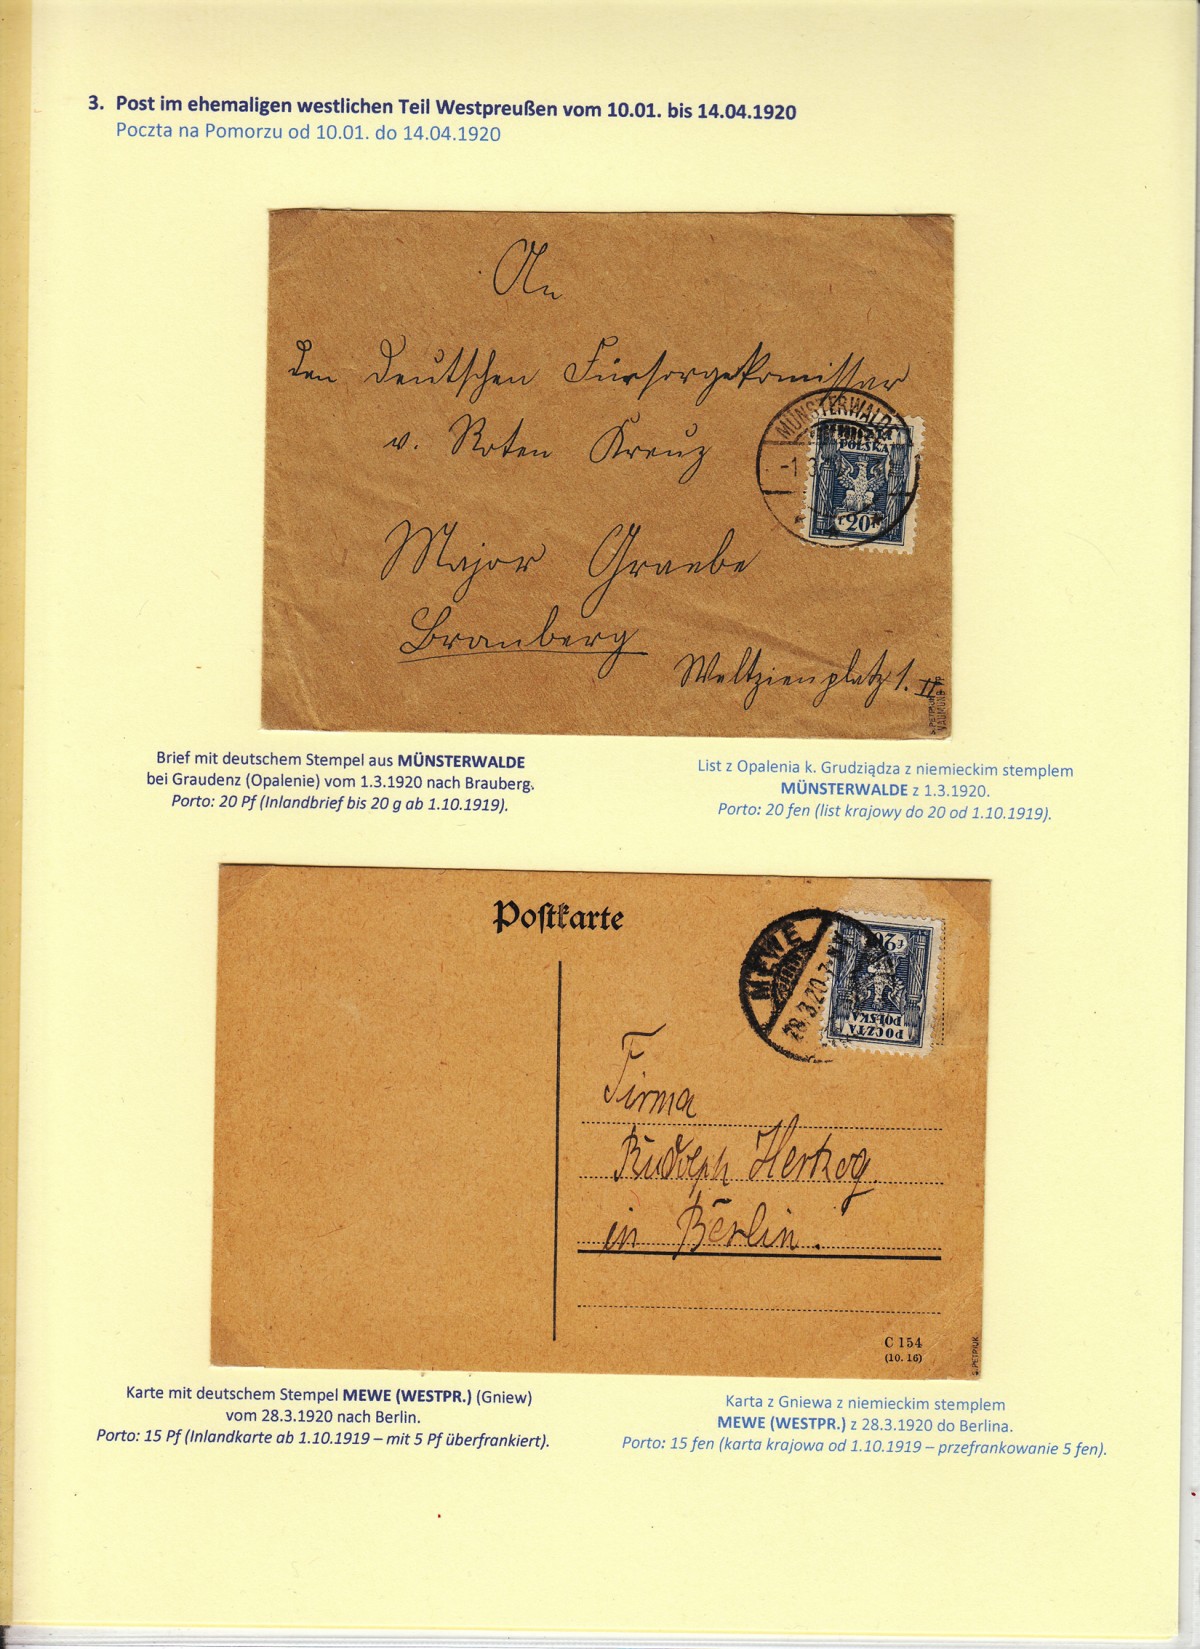 3. Post im ehemaligen westlichen Teil Westpreußen vom 10.01. bis 14.04.1920
Poczta na Pomorzu od 10.01. do 14.04.1920
An
den Deutschen Fürsorgekomissar
v. Roten Kreuz
Major Graebe
Branberg
Weltzienplatz 1. II
MÜNSTERWALDE
-1.3.
POCZTA
POLSKA
20
PETRIUK
Brief mit deutschem Stempel aus MÜNSTERWALDE
bei Graudenz (Opalenie) vom 1.3.1920 nach Brauberg.
Porto: 20 Pf (Inlandbrief bis 20 g ab 1.10.1919).
List z Opalenia k. Grudziądza z niemieckim stemplem
MÜNSTERWALDE z 1.3.1920.
Porto: 20 fen (list krajowy do 20 od 1.10.1919).
Postkarte
MEWE
28.3.20.7-8V
20 F
POCZTA
POLSKA
Firma
Rudolph Hertzog
in Berlin.
C 154
(10. 16)
PETRIUK
Karte mit deutschem Stempel MEWE (WESTPR.) (Gniew)
vom 28.3.1920 nach Berlin.
Porto: 15 Pf (Inlandkarte ab 1.10.1919 – mit 5 Pf überfrankiert).
Karta z Gniewa z niemieckim stemplem
MEWE (WESTPR.) z 28.3.1920 do Berlina.
Porto: 15 fen (karta krajowa od 1.10.1919 – przefrankowanie 5 fen).